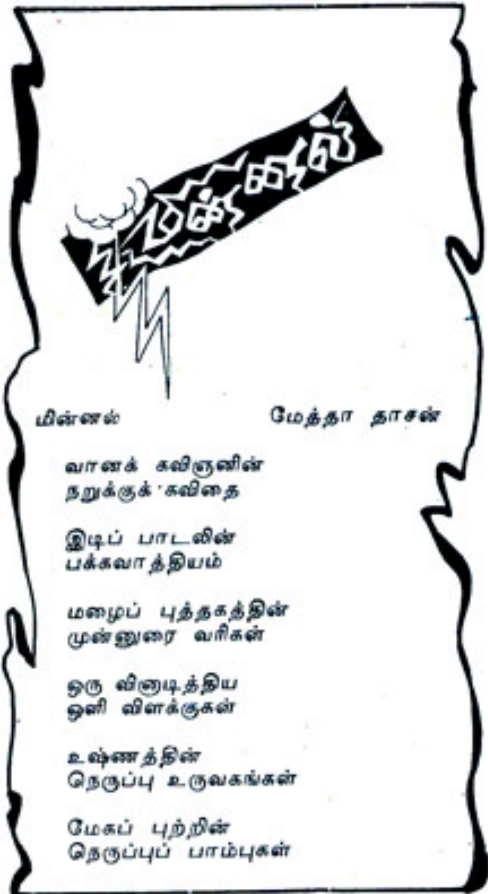 மின்னல்
மின்னல் மேத்தா தாசன்
வானக் கவிஞனின்
நறுக்குக் கவிதை
இடிப் பாடலின்
பக்கவாத்தியம்
மழைப் புத்தகத்தின்
முன்னுரை வரிகள்
ஒரு வினாடித்திய
ஒளி விளக்குகள்
உஷ்ணத்தின்
நெருப்பு உருவகங்கள்
மேகப் புற்றின்
நெருப்புப் பாம்புகள்